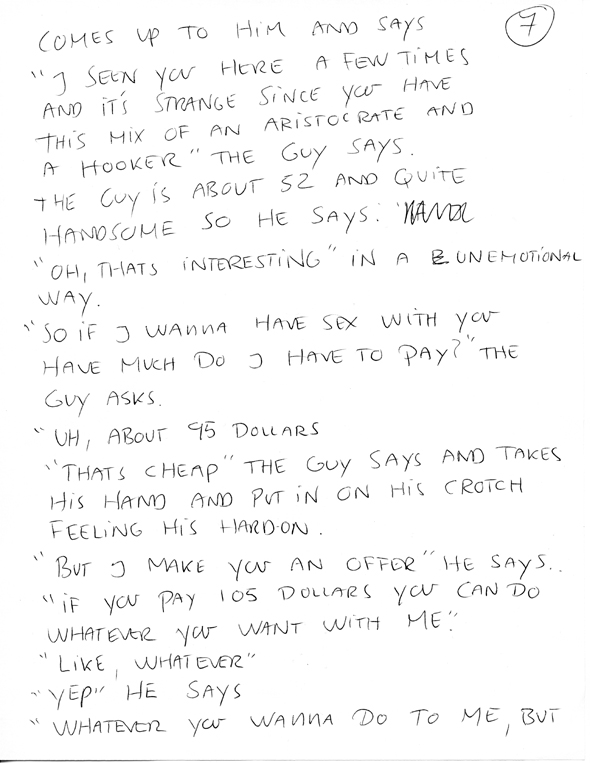 7
COMES UP TO HIM AND SAYS
"I SEEN YOU HERE A FEW TIMES
AND IT'S STRANGE SINCE YOU HAVE
THIS MIX OF AN ARISTOCRATE AND
A HOOKER" THE GUY SAYS.
THE GUY IS ABOUT 52 AND QUITE
HANDSOME SO HE SAYS:
"OH, THATS INTERESTING" IN A UNEMOTIONAL
WAY.
"SO IF I WANNA HAVE SEX WITH YOU
HAVE MUCH DO I HAVE TO PAY?" THE
GUY ASKS.
"UH, ABOUT 95 DOLLARS
"THATS CHEAP" THE GUY SAYS AND TAKES
HIS HAND AND PUT IN ON HIS CROTCH
FEELING HIS HARD-ON.
"BUT I MAKE YOU AN OFFER" HE SAYS..
"IF YOU PAY 105 DOLLARS YOU CAN DO
WHATEVER YOU WANT WITH ME."
"LIKE, WHATEVER"
"YEP" HE SAYS
"WHATEVER YOU WANNA DO TO ME, BUT